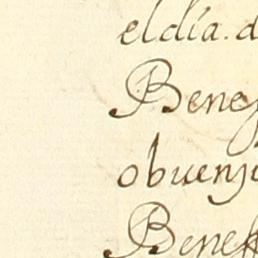 el día. d
Benef
obuenjo
Beneff